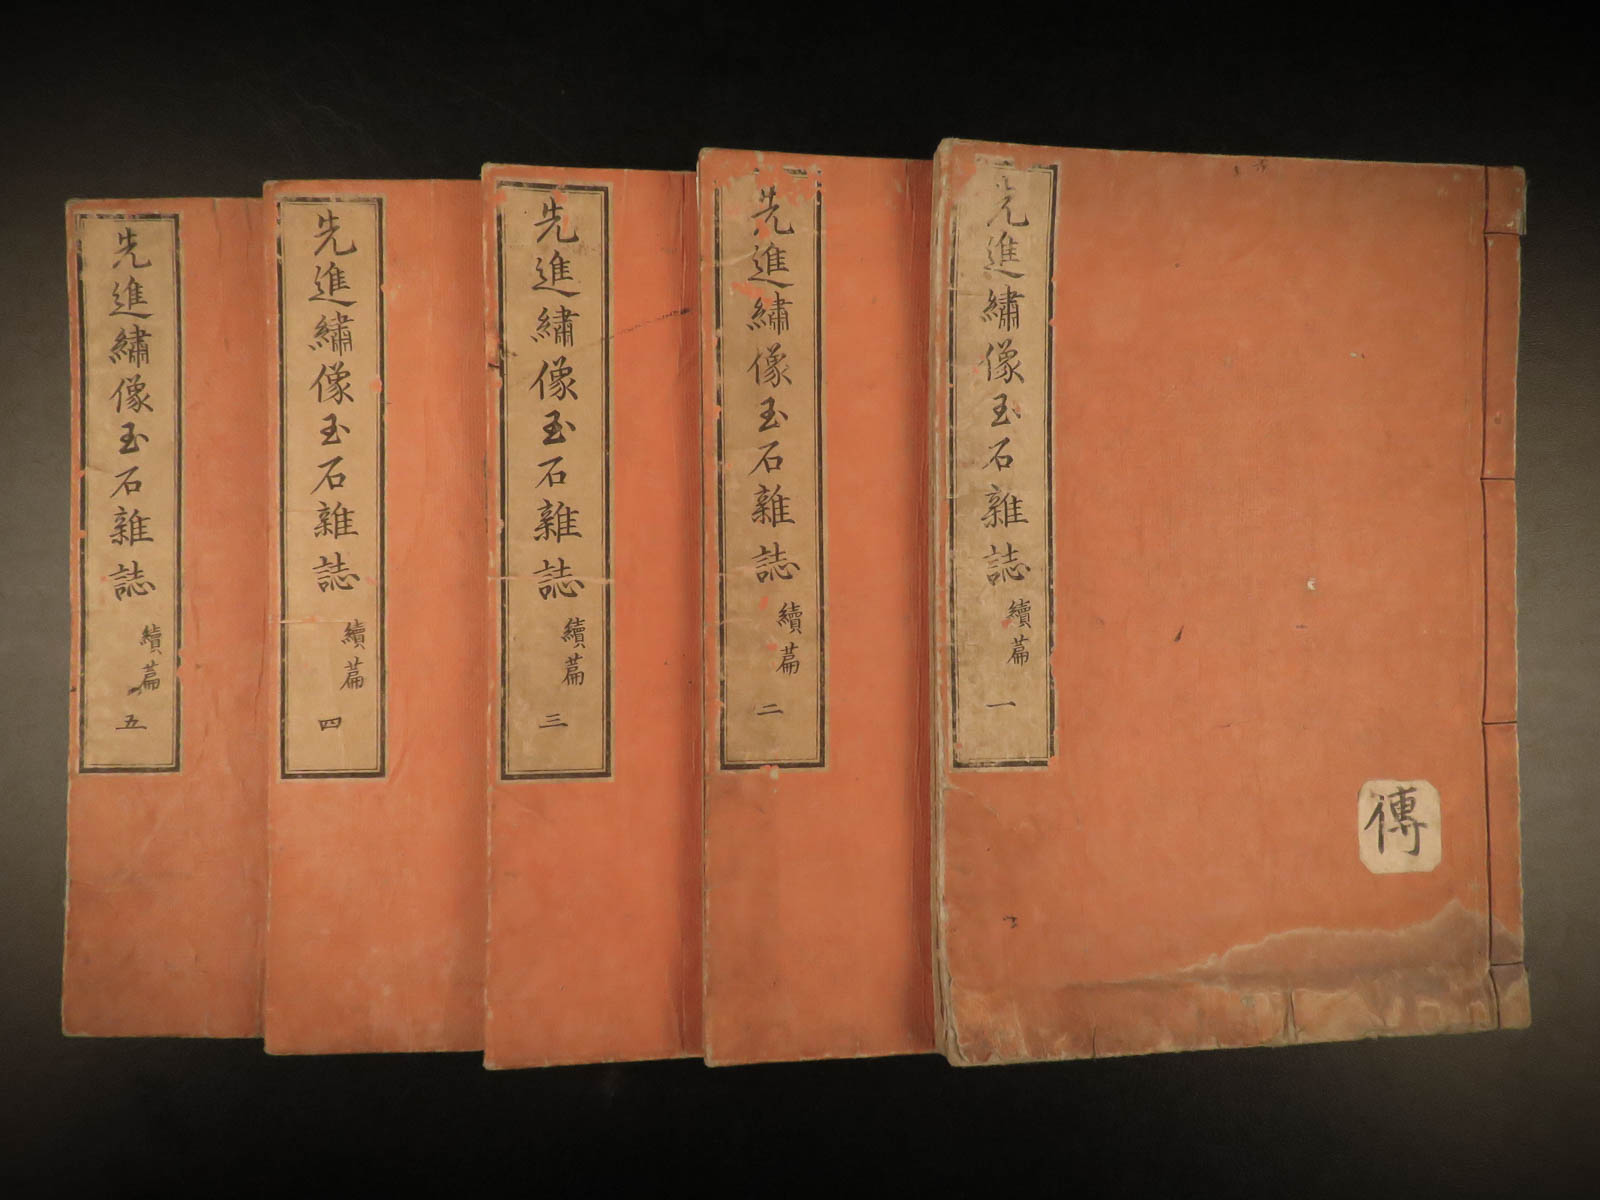 先進繡像玉石雜誌 續篇 一
傳
先進繡像玉石雜誌 續篇 二
先進繡像玉石雜誌 續篇 三
先進繡像玉石雜誌 續篇 四
先進繡像玉石雜誌 續篇 五